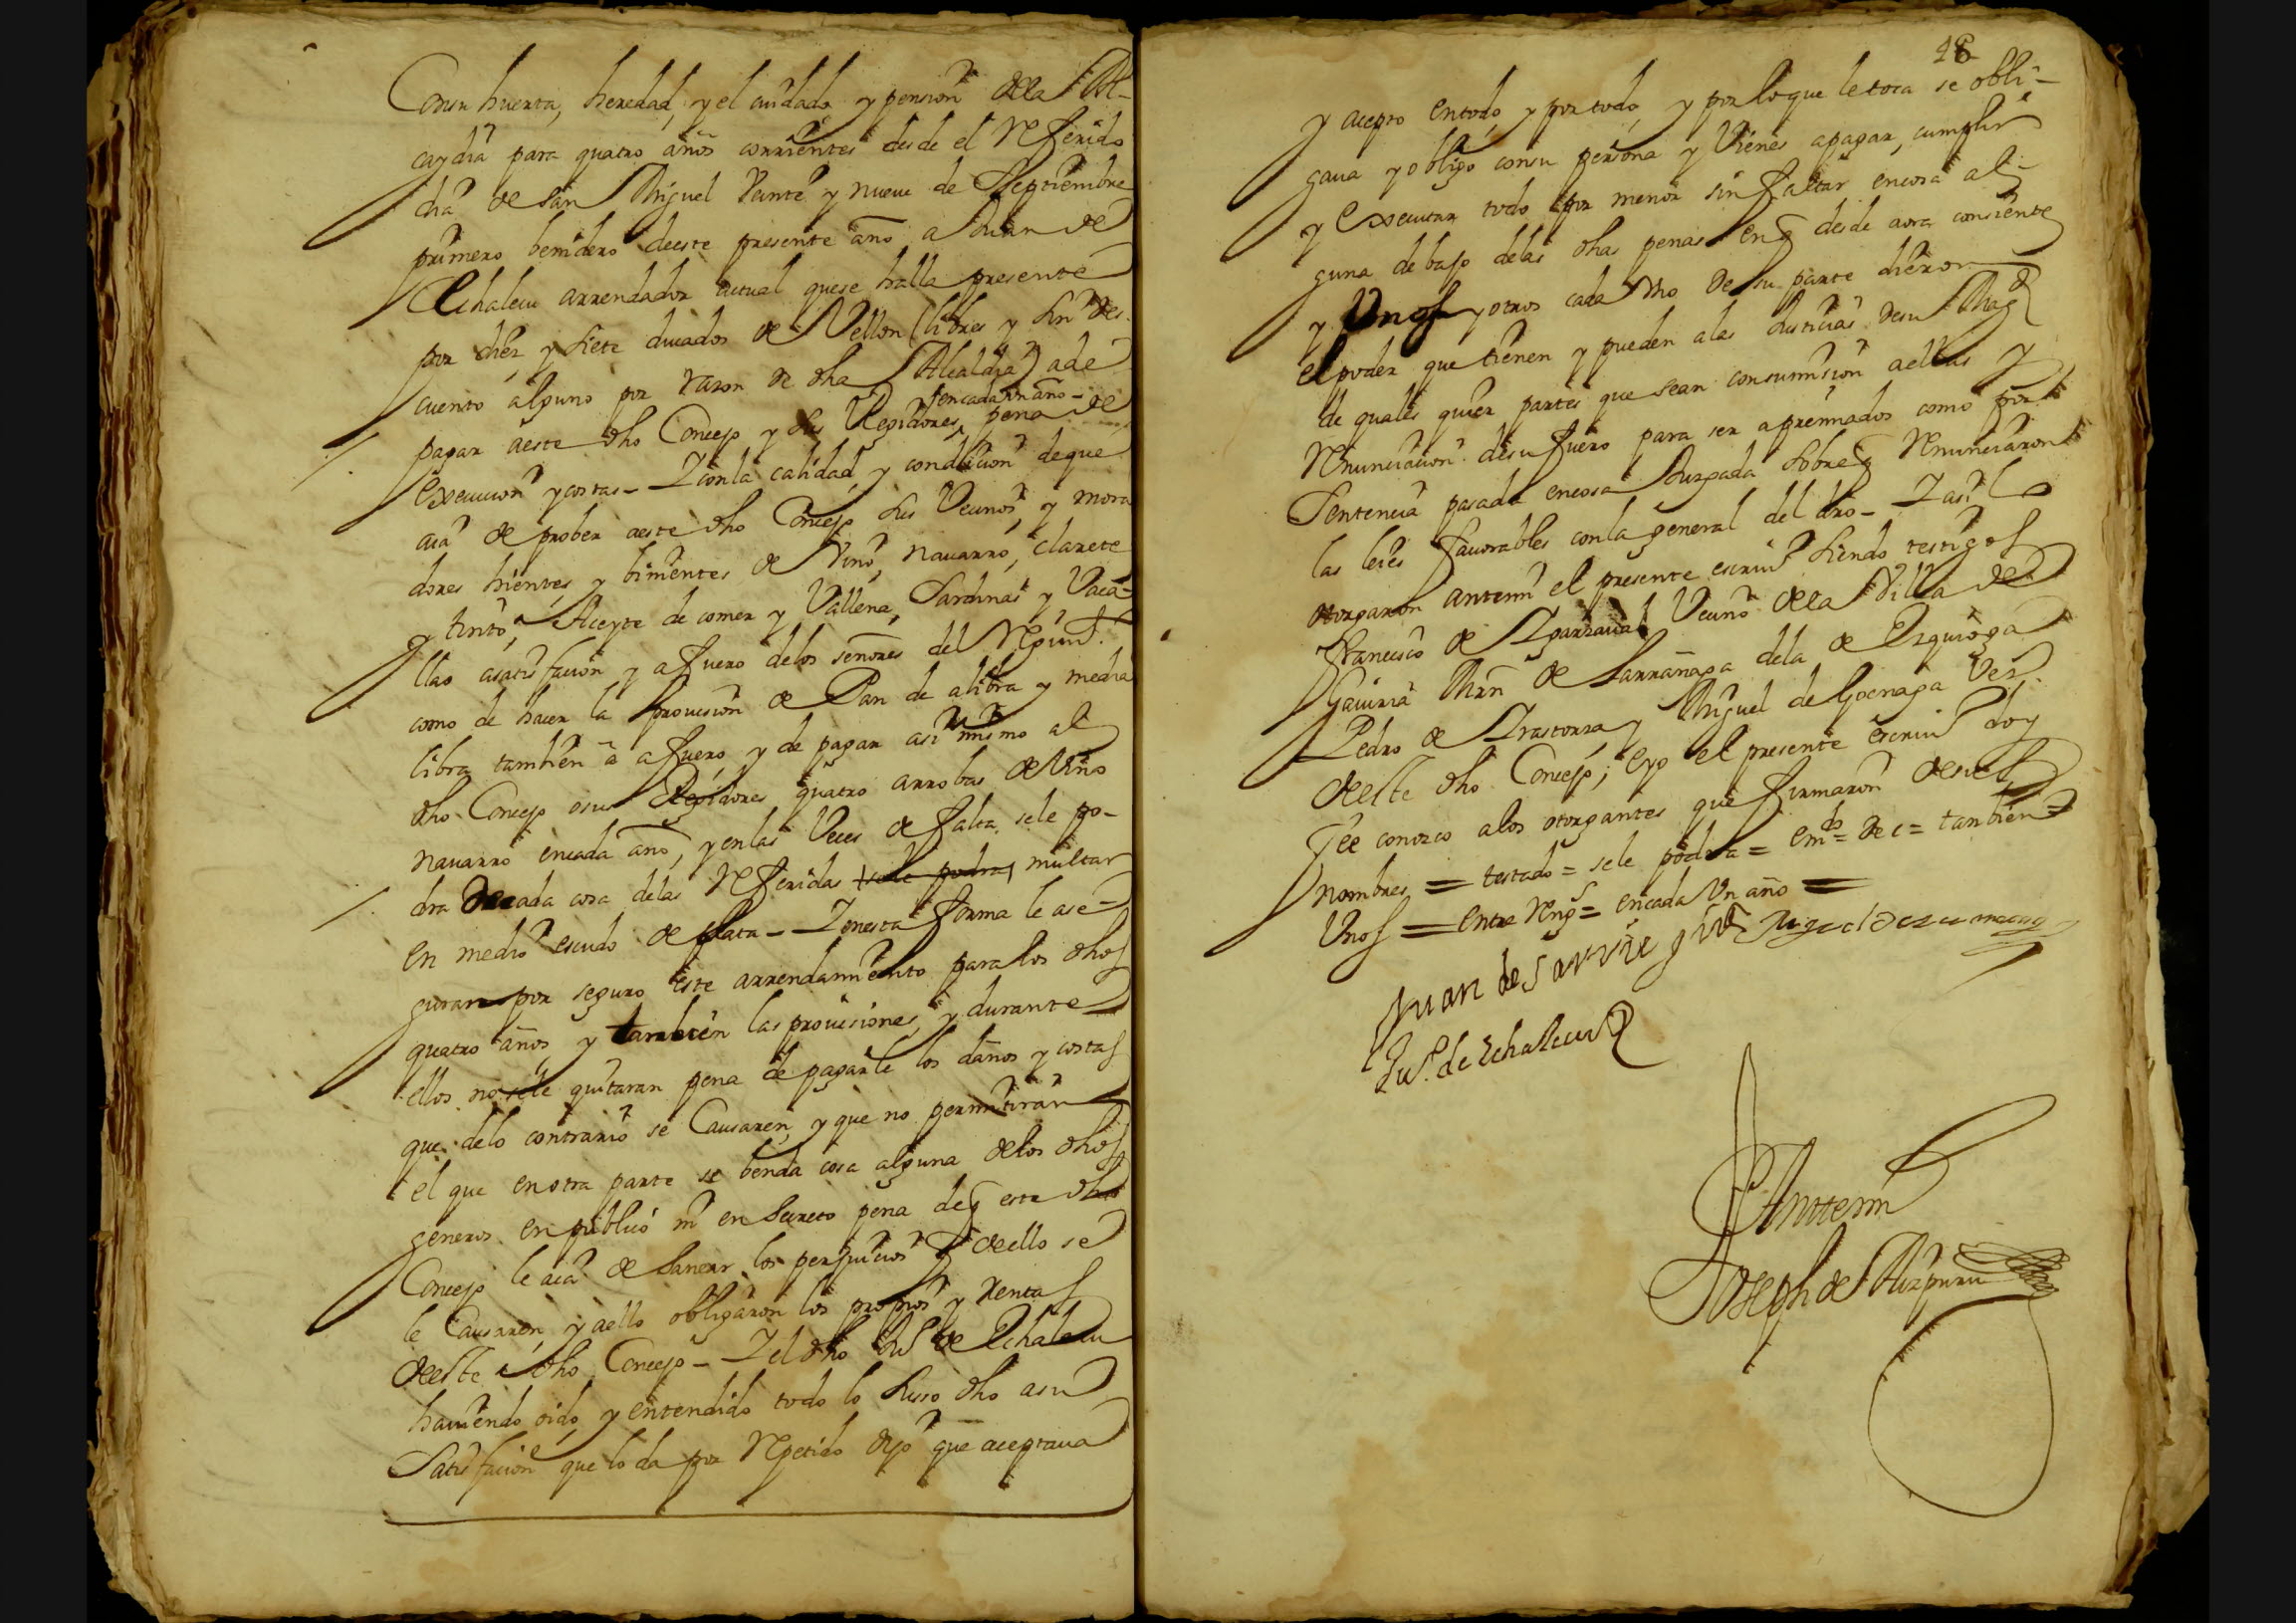 Consu huerta, heredad, y el cuidado y pension dela Al-
caydia para quatro años corrientes desde el Referido
dia de San Miguel Veinte y nueve de Septiembre
primero benidero deeste presente año a Juan de
Echalecu arrendador actual quese halla presente
por diez y siete ducados de Vellon (libres y sin des-
cuento alguno por razon de dha Alcaldia) ade
pagar aeste dho Concejo y sus Regidores, pena de
encada un año-
execucion y costas- Y conla calidad, y condicion deque
aia de prober aeste dho Concejo sus Vecinos y mora
dores hientes y binientes de Vino, navarro, clarete
y tinto, Aceyte de comer y Vallena, Sardinas y Vaca-
llao asatisfacion y afuero delos señores del Regimto.
como de hacer la provision de Pan de alibra y media
libra tambien a afuero, y de pagar asi mismo al
dho Concejo osus Regidores quatro arrobas de Vino
navarro encada año, y enlas Veces de falta, sele po-
dra decada cosa delas Referidas sele podra multar
en medio escudo de plata- Y enesta forma le ase-
guran por seguro este arrendamiento paralos dhos
quatro años, y tambien las provisiones, y durante
ellos nosele quitaran pena de pagarle los daños y costas
que delo contrario se Causaren, y que no permitiran
el que enotra parte se benda cosa alguna delos dhos
generos en publico ni en Secreto pena deq este dho
Concejo le aia de Sanear los perjuicios q deello se
le Causaren, y aello obligaron los propios y rentas
deeste dho Concejo- Y el dho Jus de Echalecu
haviendo oido, y entendido todo lo suso dho asu
Satisfacion que lo da por Repetido dijo que aceptava
18
y acepto entodo, y portodo, y porloque letoca se obli-
gava y obligo consu persona y Vienes apagar, cumplir
y executar todo por menor sin faltar encosa al-
guna debajo delas dhas penas enq desde aora consiente
y Unos y otros cada Uno de su parte dieron
el poder que tienen y pueden alas Justicias desu Magd
de quales quier partes que sean consumision aellas y
Renunciacion desu fuero para ser apremiados como por
Sentencia pasada encosa Juzgada sobreq Renunciaron
las leies favorables conla general del dro- Y asi lo
otorgaron antemi el presente escrivo siendo testigos
Francisco de Ygarzaval Vecino dela Villa de
Gaviria Mrn de Larrañaga dela de Ezquioga
Pedro de Yrastorza, y Miguel de Goenaga Vezs.
deeste dho Concejo; eyo el presente escrivo doy
fee conozco alos otorgantes que firmaron desus
nombres = testado = sele podra = emdos = de c = tambien =
Unos = entre Rengs = encada Un año =
Juan de Sarrie gui
Jus. de echalecu
Anttemi
Joseph de Aizpuru